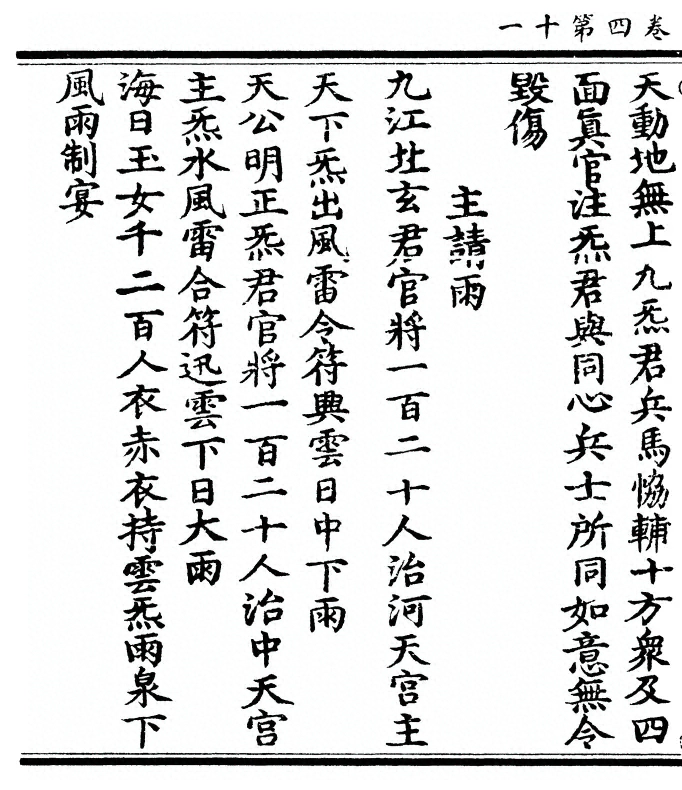 卷四第十一
天動地無上九炁君兵馬恊輔十方衆及四
面眞官注炁君與同心兵士所同如意無令
毀傷
主請雨
九江壯玄君官將一百二十人治河天宮主
天下炁出風雷令符興雲日中下雨
天公明正炁君官將一百二十人治中天宮
主炁水風雷合符迅雲下日大雨
海日玉女千二百人衣赤衣持雲炁雨泉下
風雨制宴